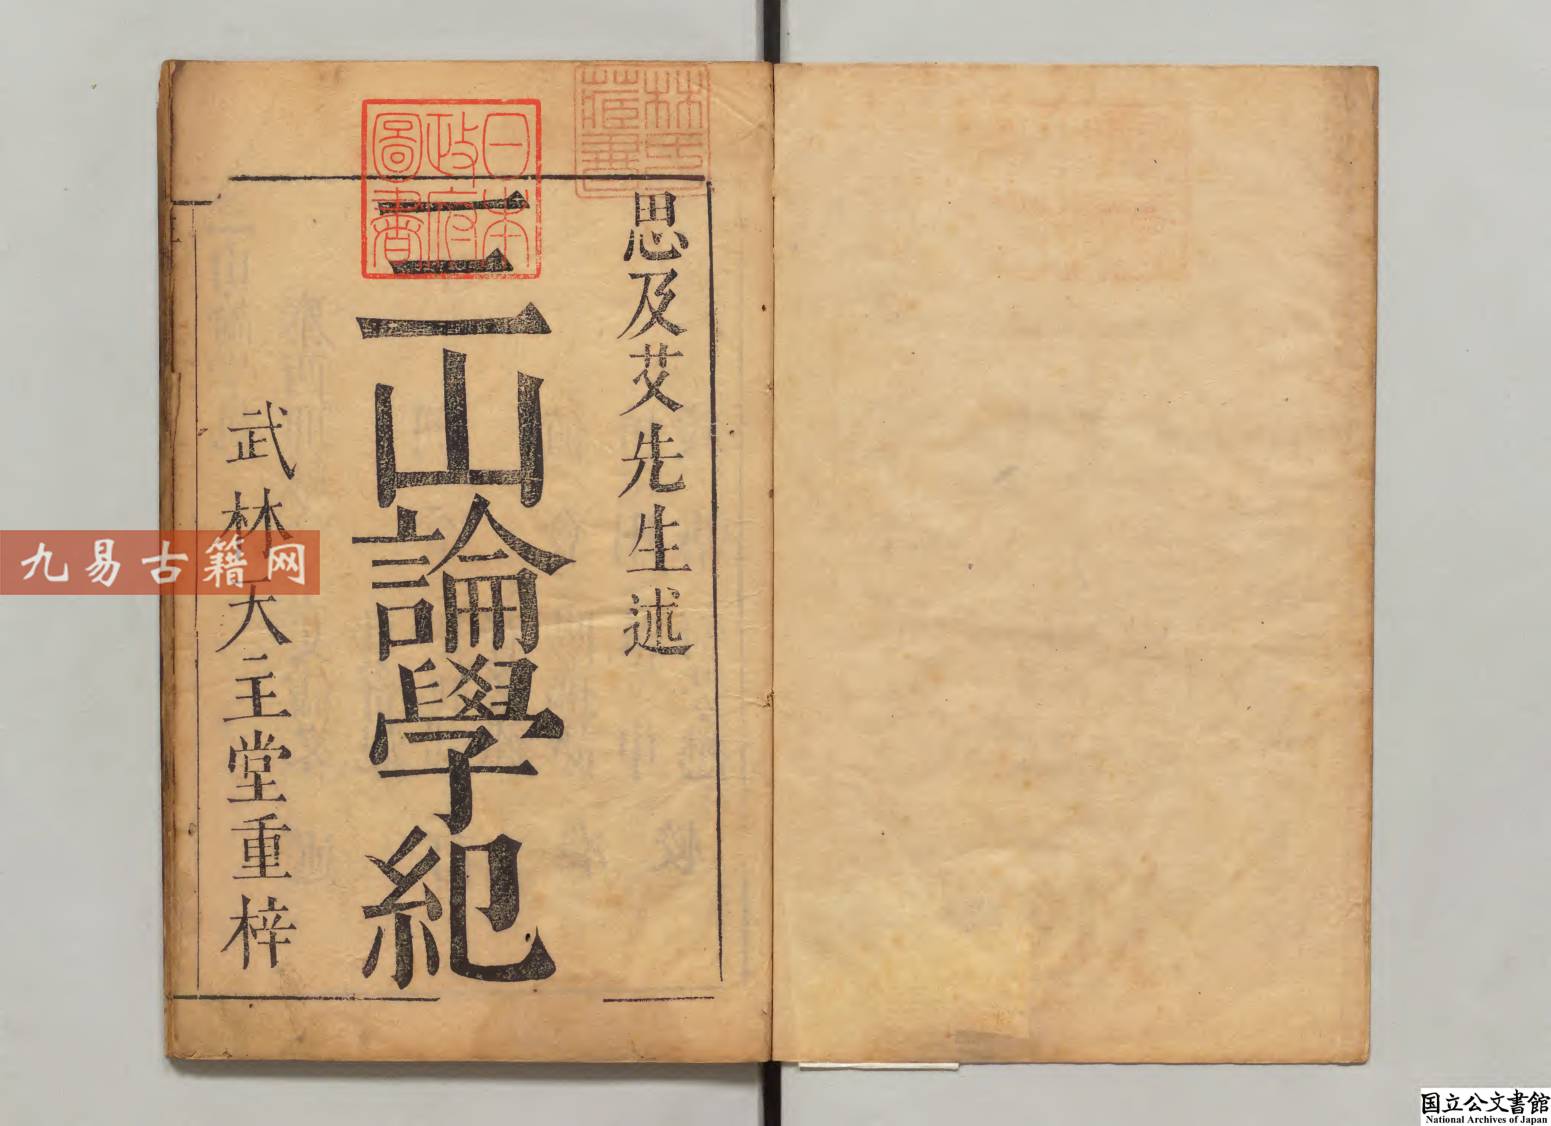 思及艾先生述
三山論學紀
武林天主堂重梓
日本政府圖書
林氏藏書
九易古籍网
国立公文書館
National Archives of Japan